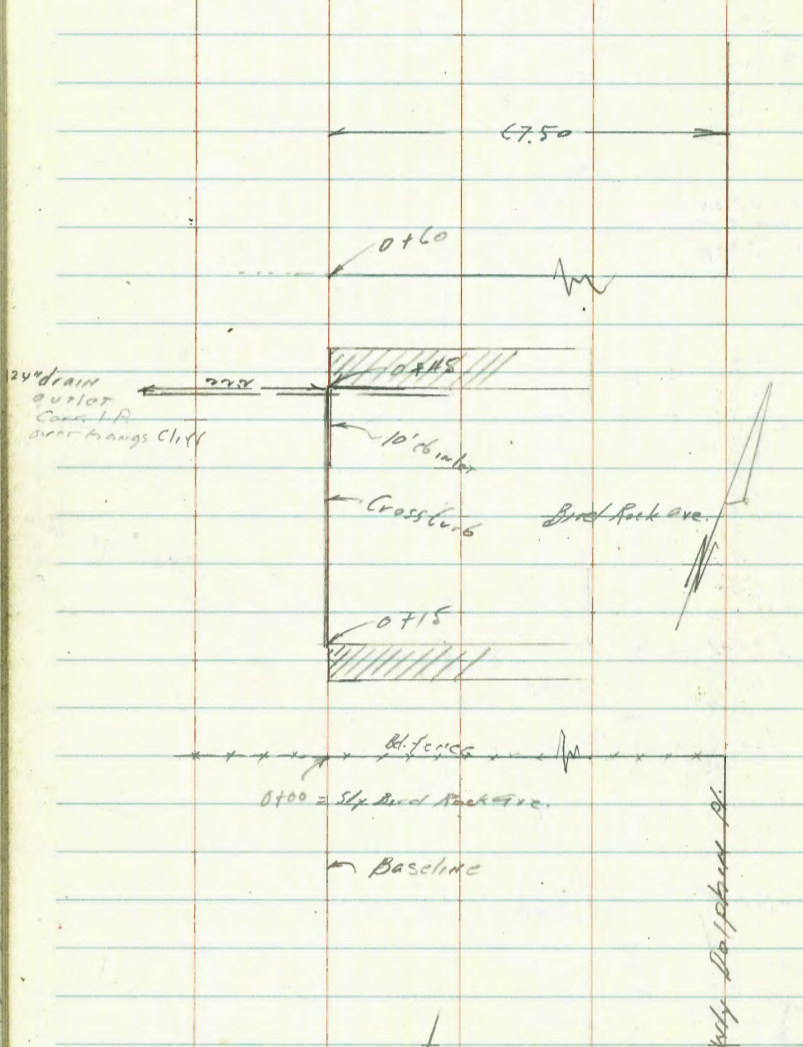 67.50
0+60
24" drain
outlet
Corr. I.P.
over hangs Cliff
0+45
10' cb inlet
Cross Curb
Bird Rock Ave.
N
0+15
Bd. fence
0+00 = Sly Bird Rock Ave.
Baseline
Wly Dolphin Pl.